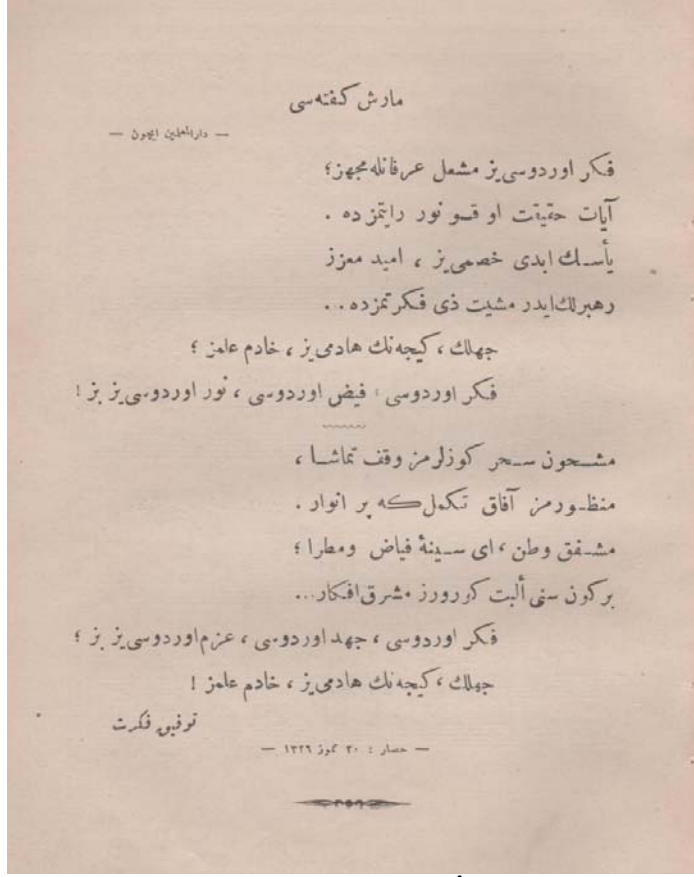 مارش كفته‌سى
— دارالمعلمين ايچون —
فكر اوردوسى‌يز مشعل عرفانله مجهز؛
آيات حقيقت اوقـو نور رايتمزده .
يأسـك ابدى خصمى‌يز ، اميد معزز
رهبرلك‌ايدر مشيت ذى فكرتمزده . . .
جهلك ، كيجه‌نك هادمى‌يز ، خادم علمز ؛
فكر اوردوسى ، فيض اوردوسى ، نور اوردوسى‌يز بز !
مشـحون سـحر كوزلرمز وقف تماشـا ،
منظـورمز آفاق تكمل‌كه پر انوار .
مشـفق وطن ، اى سـينهٔ فياض ومطرا ؛
بركون سنى ألبت كوررورز مشرق‌افكار...
فكر اوردوسى ، جهد اوردوسى ، عزم‌اوردوسى‌يز بز ؛
جهلك ، كيجه‌نك هادمى‌يز ، خادم علمز !
توفيق فكرت
— حصار : ٣٠ تموز ١٣٢٦ —